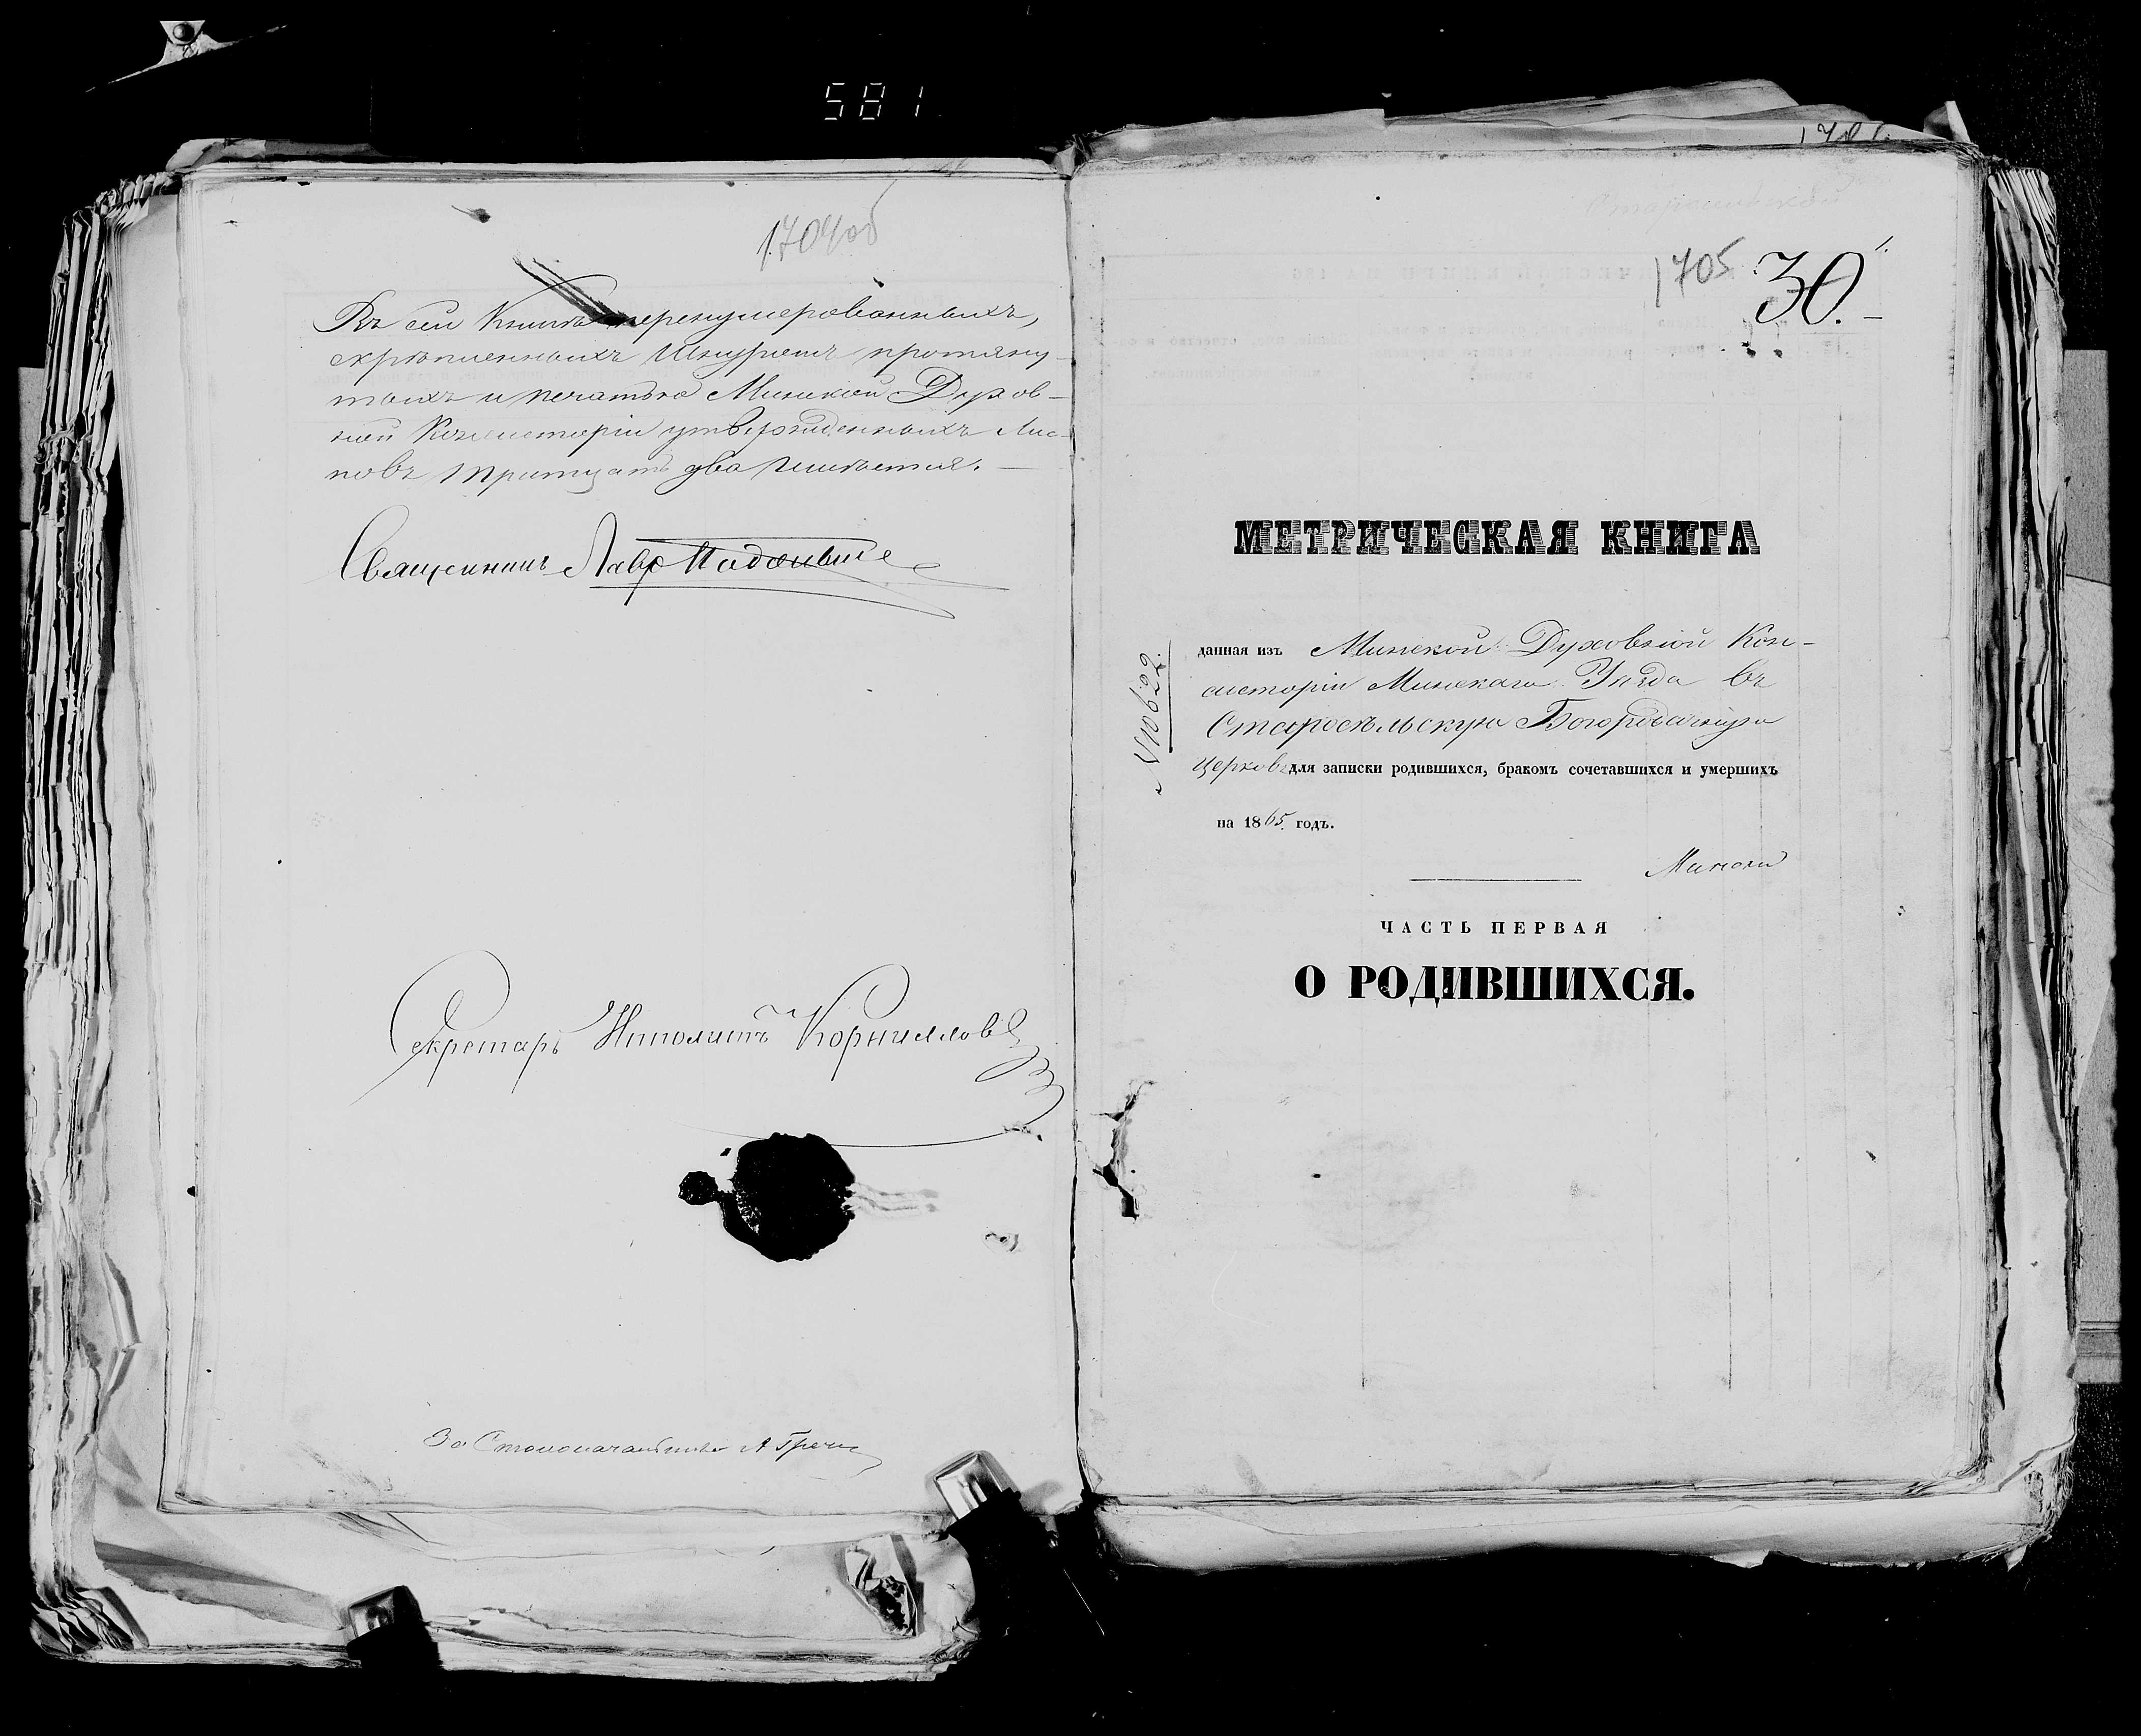 581
1704 об
Въ сей Книгѣ перенумерованныхъ,
скрѣпленныхъ Шнуромъ протяну-
тыхъ и печатью Минской Духов-
ной Консисторіи утвержденныхъ Лис-
товъ тритцать два имѣется. —
Священникъ Лавр
Секретарь Иполитъ Корниллов
За Столоначальника А Гречи
1705 30. 1.
МЕТРИЧЕСКАЯ КНИГА
№ 10622.
данная изъ Минской Духовной Кон-
систоріи Минскаго Уѣзда въ
Старосѣльскую Богородичную
Церковь для записки родившихся, бракомъ сочетавшихся и умершихъ
на 1865. годъ.
ЧАСТЬ ПЕРВАЯ
О РОДИВШИХСЯ.